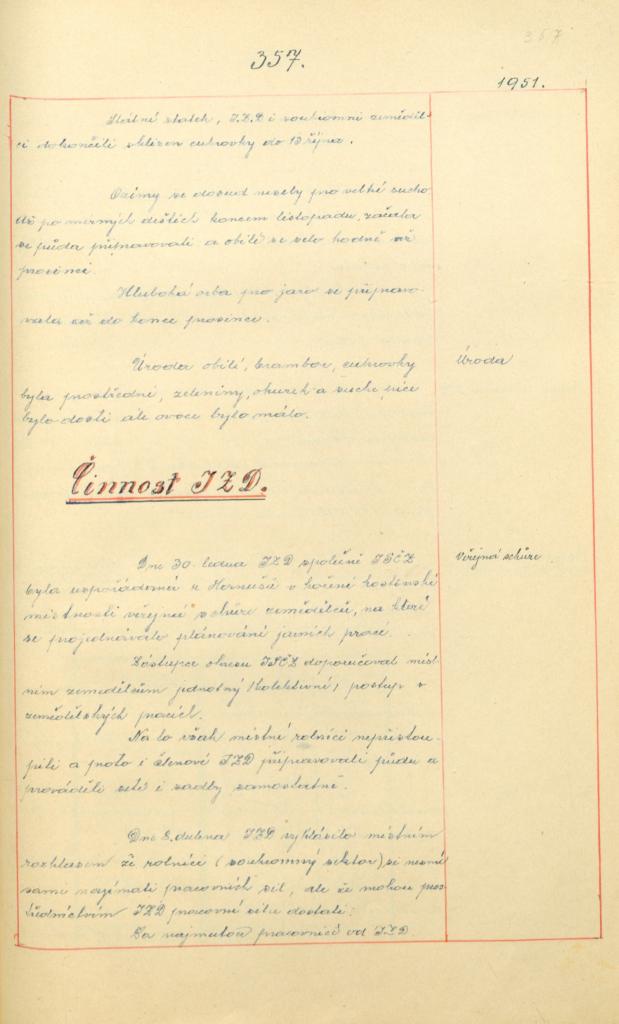 357
357.
1951.
Státní statek, J.Z.D. i soukromní zeměděl-
ci dokončili sklizen cukrovky do 13 října.
Ozimy se dosud nesely pro velké sucho
až po mírných deštích koncem listopadu, začala
se půda připravovati a obilí se selo hodně až
prosinci.
Hluboká orba pro jaro se připravo-
vala až do konce prosince.
Úroda obilí, brambor, cukrovky
Úroda
byla prostřední, zeleniny, okurek a
bylo dosti ale ovoce bylo málo.
Činnost JZD.
Dne 30. ledna JZD společně JSČZ
Veřejná schůze
byla uspořádaná u v kostelské
místnosti veřejná schůze zemědělců, na které
se projednávalo plánování jarních prací.
Zástupce okresu JSČZ doporučoval míst-
ním zemědělcům jednotný (kolektivní) postup v
zemědělských pracích.
Na to však místní rolníci nepřistou-
pili a proto i členové JZD připravovali půdu a
prováděli setí i sadby samostatně.
Dne 8. dubna JZD vyhlásilo místním
rozhlasem že rolníci (soukromný sektor), si nesmí
sami najímati pracovních sil, ale že mohou pros-
třednictvím JZD pracovní sílu dostati.
Za najmutou pracovnici od JZD